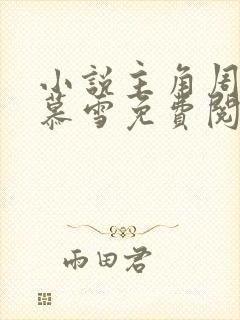 小説主角周
慕雪免費閱
雨田君